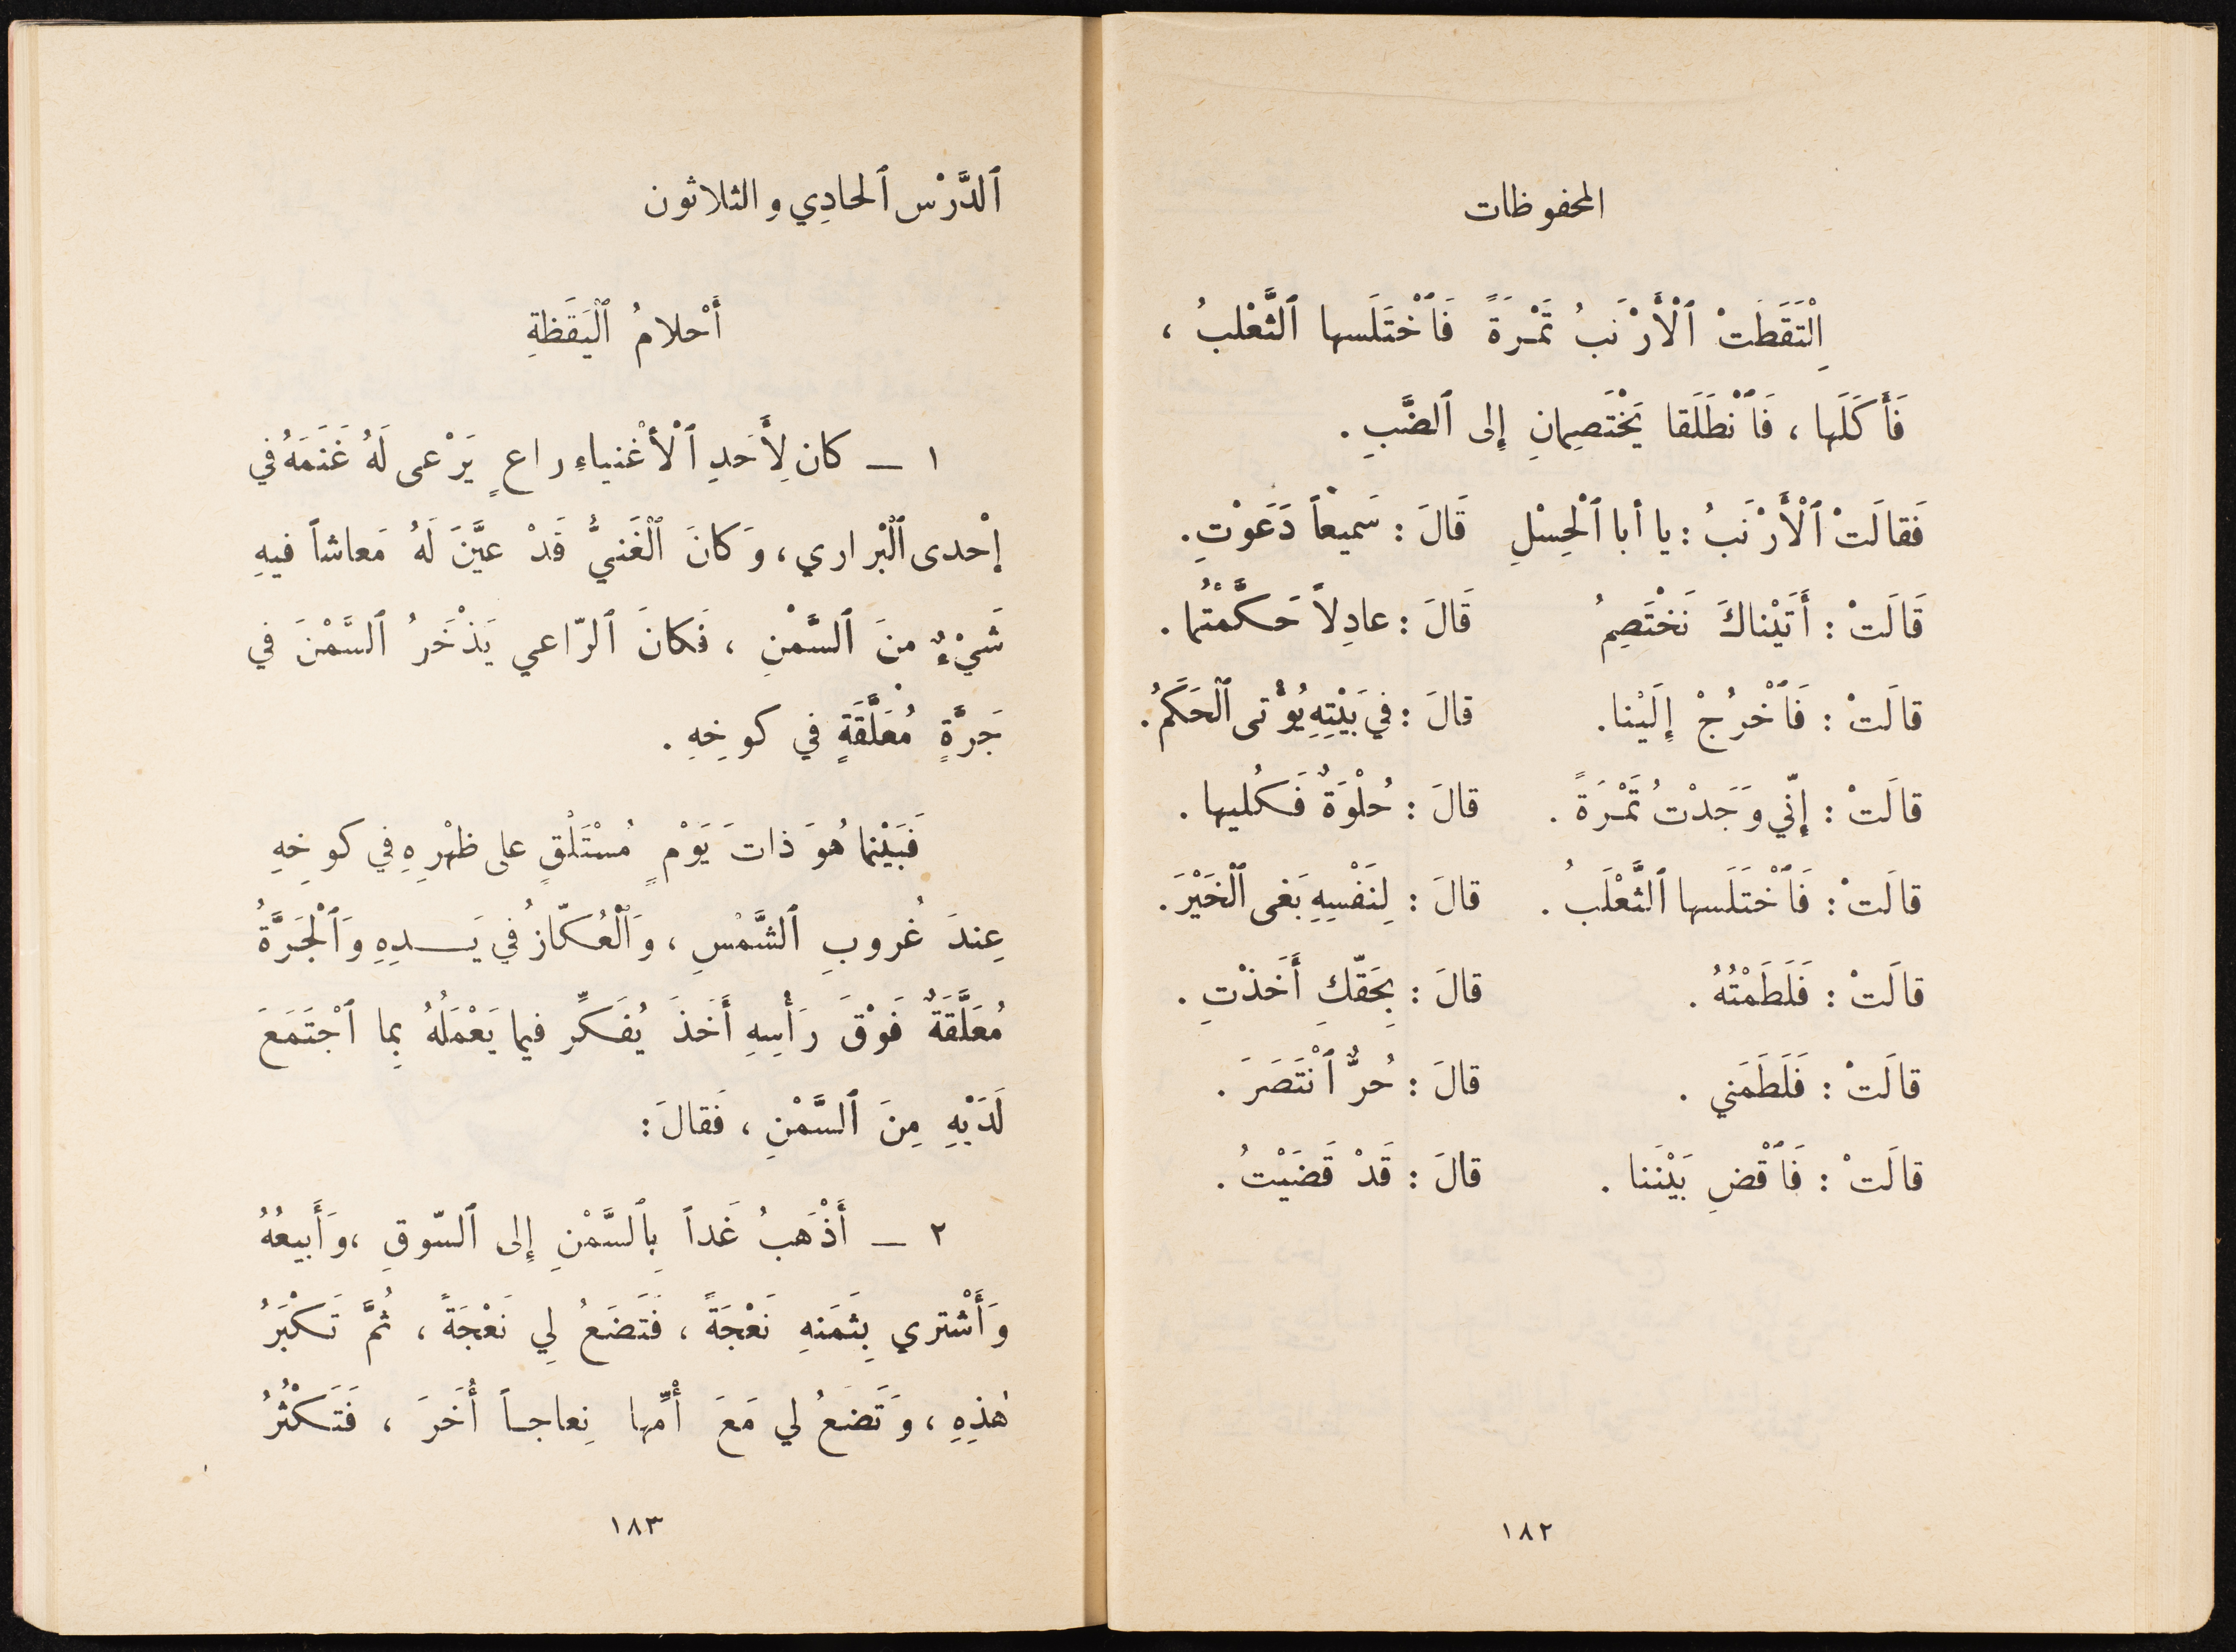 المحفوظات
اِلْتَقَطَتْ ٱلْأَرْنَبُ تَمْرَةً فَٱخْتَلَسها ٱلثَّعْلبُ ،
فَأَكَلَها ، فَٱنْطَلَقا يَخْتَصِمانِ إِلى ٱلضَّبِ .
فَقالَتْ ٱلْأَرْنَبُ : يا أبا ٱلْحِسْلِ قَالَ : سَميعْاً دَعَوْتِ .
قَالَتْ : أَتَيْناكَ نَخْتَصِمُ قَالَ : عادِلاً حَكَّمْتُما .
قالَتْ : فَٱخْرُجْ إِلَيْنا . قالَ : في بَيْتِهِ يُؤْتى ٱلْحَكَمُ .
قالَتْ : إنّي وَجَدْتُ تَمْرَةً . قالَ : حُلْوَةٌ فَكُليها .
قالَتْ : فَٱخْتَلَسها ٱلثَّعْلَبُ . قالَ : لِنَفْسِهِ بَغى ٱلْخَيْرَ .
قالَتْ : فَلَطَمْتُهُ . قالَ : بِحَقّكِ أَخَذْتِ .
قالَتْ : فَلَطَمَني . قالَ : حُرٌّ ٱنْتَصَرَ .
قالَتْ : فَٱقْضِ بَيْنَنا . قالَ : قَدْ قَضَيْتُ .
١٨٢
ٱلدَّرْس ٱلحادِي والثلاثون
أَحْلامُ ٱلْيَقَظةِ
١ — كان لِأَحَدِ ٱلْأغْنياءِ راعٍ يَرْعى لَهُ غَنَمَهُ في
إحْدى ٱلْبْراري ، وَكانَ ٱلْغَنيُّ قَدْ عيَّنَ لَهُ مَعاشاً فيهِ
شَيْءٌ منَ ٱلسَّمْنِ ، فَكانَ ٱلرّاعي يَذْخَرُ ٱلسَّمْنَ في
جَرَّةٍ مُعَلَّقَةٍ في كوخِهِ .
فَبَيْنما هُوَ ذاتَ يَوْمٍ مُسْتَلْقٍ على ظهْرِهِ في كوخِهِ
عِندَ غُروبِ ٱلشَّمْسِ ، وَٱلْعُكّازُ في يَـدِهِ وَٱلْجَرَّةُ
مُعَلَّقَةٌ فَوْقَ رَأْسِهِ أَخَذَ يُفَكِّر فيما يَعْمَلُهُ بِما ٱجْتَمَعَ
لَدَيْهِ مِنَ ٱلسَّمْنِ ، فَقالَ :
٢ — أَذْهَبُ غَداً بِٱلسَّمْنِ إِلى ٱلسّوقِ ، وَأَبيعُهُ
وَأَشْتري بِثَمَنهِ نَعْجَةً ، فَتَضَعُ لِي نَعْجَةً ، ثُمَّ تَكْبَرُ
هٰذِهِ ، وَتَضَعُ لي مَعَ أُمِّها نِعاجـاً أُخَرَ ، فَتَكْثُرُ
١٨٣